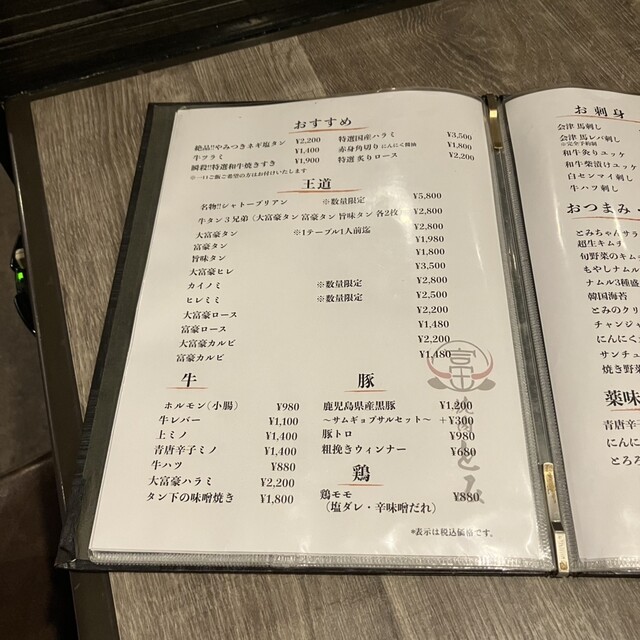 おすすめ
絶品!!やみつきネギ塩タン ¥2,200 特選国産ハラミ ¥3,500
牛ツラミ ¥1,400 赤身角切り にんにく醤油 ¥1,800
瞬殺!!特選和牛焼きすき ¥1,900 特選 炙りロース ¥2,200
※一口ご飯ご希望の方はお付けいたします
王道
名物!!シャトーブリアン ※数量限定 ¥5,800
牛タン3兄弟(大富豪タン 富豪タン 旨味タン 各2枚) ¥2,800
大富豪タン ※1テーブル1人前迄 ¥2,800
富豪タン ¥1,980
旨味タン ¥1,800
大富豪ヒレ ¥3,500
カイノミ ※数量限定 ¥2,800
ヒレミミ ※数量限定 ¥2,500
大富豪ロース ¥2,200
富豪ロース ¥1,480
大富豪カルビ ¥2,200
富豪カルビ ¥1,480
牛
ホルモン(小腸) ¥980
牛レバー ¥1,100
上ミノ ¥1,400
青唐辛子ミノ ¥1,400
牛ハツ ¥880
大富豪ハラミ ¥2,200
タン下の味噌焼き ¥1,800
豚
鹿児島県産黒豚 ¥1,200
〜サムギョプサルセット〜 +¥300
豚トロ ¥980
粗挽きウィンナー ¥680
鶏
鶏モモ ¥880
(塩ダレ・辛味噌だれ)
*表示は税込価格です。
お刺身
会津 馬刺し
会津 馬レバ刺し
※完全予約制
和牛炙りユッケ
和牛柴漬けユッケ
白センマイ刺し
牛ハツ刺し
おつまみ・
とみちゃんサラ
超生キムチ
旬野菜のキムチ
もやしナムル
ナムル3種盛
韓国海苔
とみのクリ
チャンジャ
にんにく
サンチュ
焼き野菜
薬味
青唐辛子
にんに
とろろ